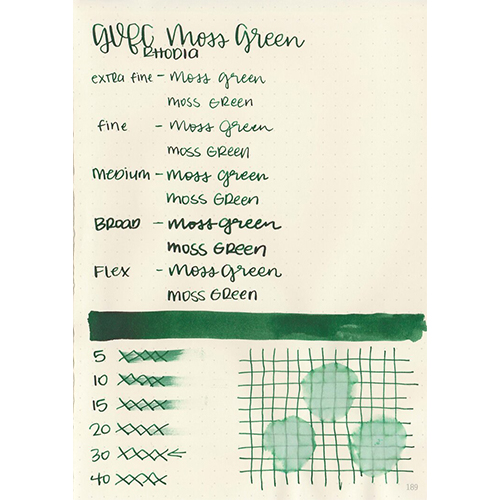 GVFC Moss Green
RHODIA
extra fine - Moss Green
Moss Green
fine - Moss Green
Moss Green
Medium - Moss Green
Moss Green
Broad - Moss Green
Moss Green
Flex - Moss Green
Moss Green
5 XXXX
10 XXXX
15 XXXX
20 XXXX
30 XXXX ←
40 XXXX
189